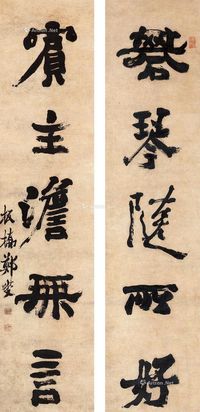 琴隨所好
賓主澹無言
板橋鄭燮